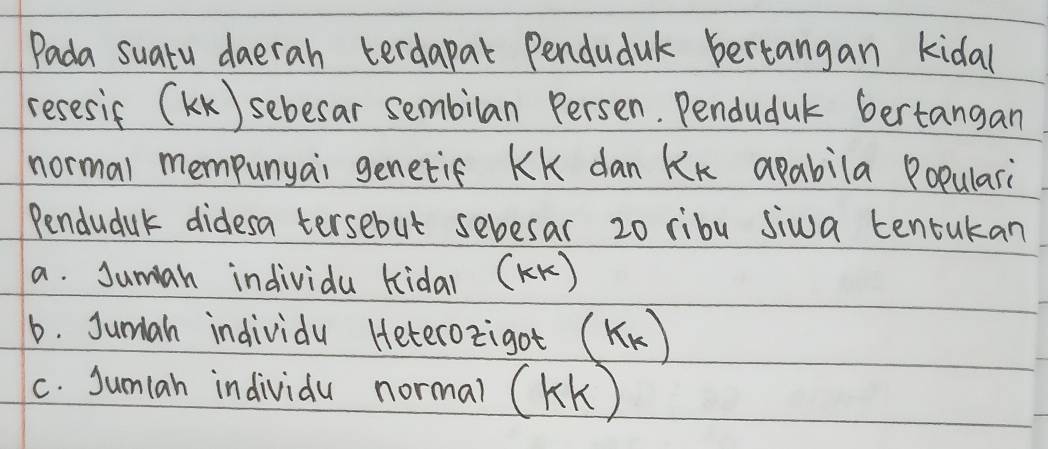 Pada suatu daerah terdapat Penduduk bertangan kidal
resesif (kk) sebesar sembilan Persen. Penduduk bertangan
normal mempunyai genetif KK dan Kk apabila Populasi
Penduduk didesa tersebut sebesar 20 ribu Jiwa tentukan
a. Jumlah individu kidal (kk)
b. Jumlah individu Heterozigot (Kk)
c. Jumlah individu normal (KK)